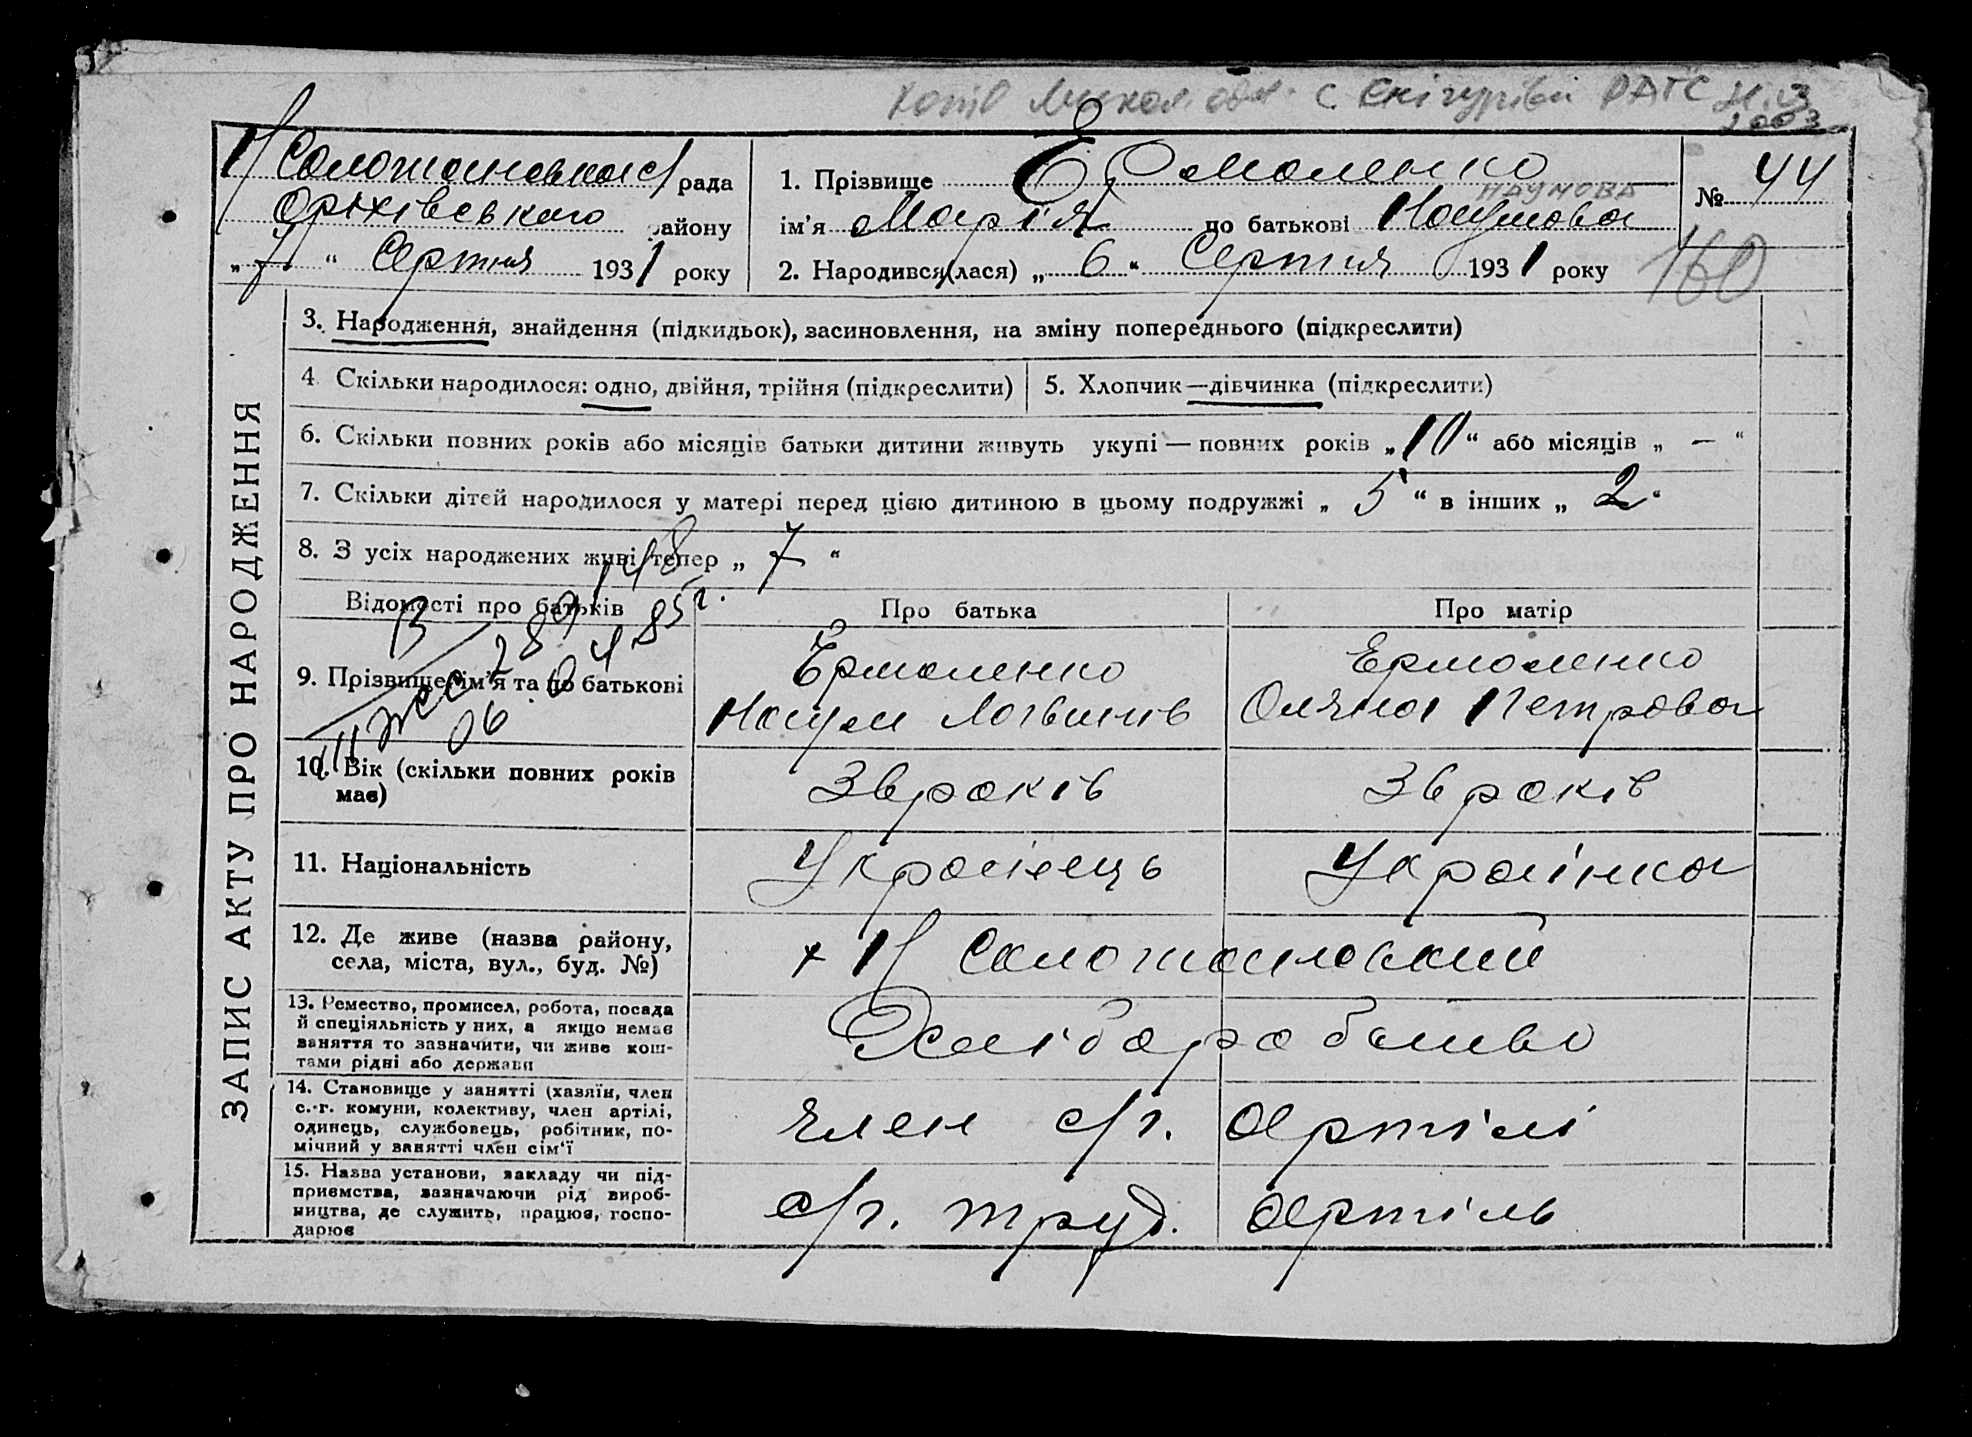 Копія Микол. обл. с. Снігурівка РАГС
2003
Н/Солошанська с/рада
Оріхівського району
„7“ Серпня 1931 року
1. Прізвище Ермоленко
НАУМОВА
ім'я Марія по батькові Наумова
2. Народився(лася) „6“ Серпня 1931 року
№ 44
160
ЗАПИС АКТУ ПРО НАРОДЖЕННЯ
3. Народження, знайдення (підкидьок), засиновлення, на зміну попереднього (підкреслити)
4. Скільки народилося: одно, двійня, трійня (підкреслити)
5. Хлопчик—дівчинка (підкреслити)
6. Скільки повних років або місяців батьки дитини живуть укупі — повних років „10“ або місяців „—“
7. Скільки дітей народилося у матері перед цією дитиною в цьому подружжі „5“ в інших „2“
8. З усіх народжених живі тепер „7“
Відомості про батьків
Про батька
Про матір
9. Прізвище, ім'я та по батькові
Ермоленко
Наум Логвинів
Ермоленко
Оляна Петрова
06 04 85 г.
10. Вік (скільки повних років
має)
36 років
36 років
11. Національність
Українець
Українка
12. Де живе (назва району,
села, міста, вул., буд. №)
х Н Солошанський
13. Ремество, промисел, робота, посада
й спеціяльність у них, а якщо немає
заняття то зазначити, чи живе кош-
тами рідні або держави
Хліборобство
14. Становище у занятті (хазяїн, член
с.-г. комуни, колективу, член артілі,
одинець, службовець, робітник, по-
мічний у занятті член сім'ї
член с/г. Артілі
15. Назва установи, закладу чи під-
приємства, зазначаючи рід вироб-
ництва, де служить, працює, госпо-
дарює
с/г. труд. Артіль